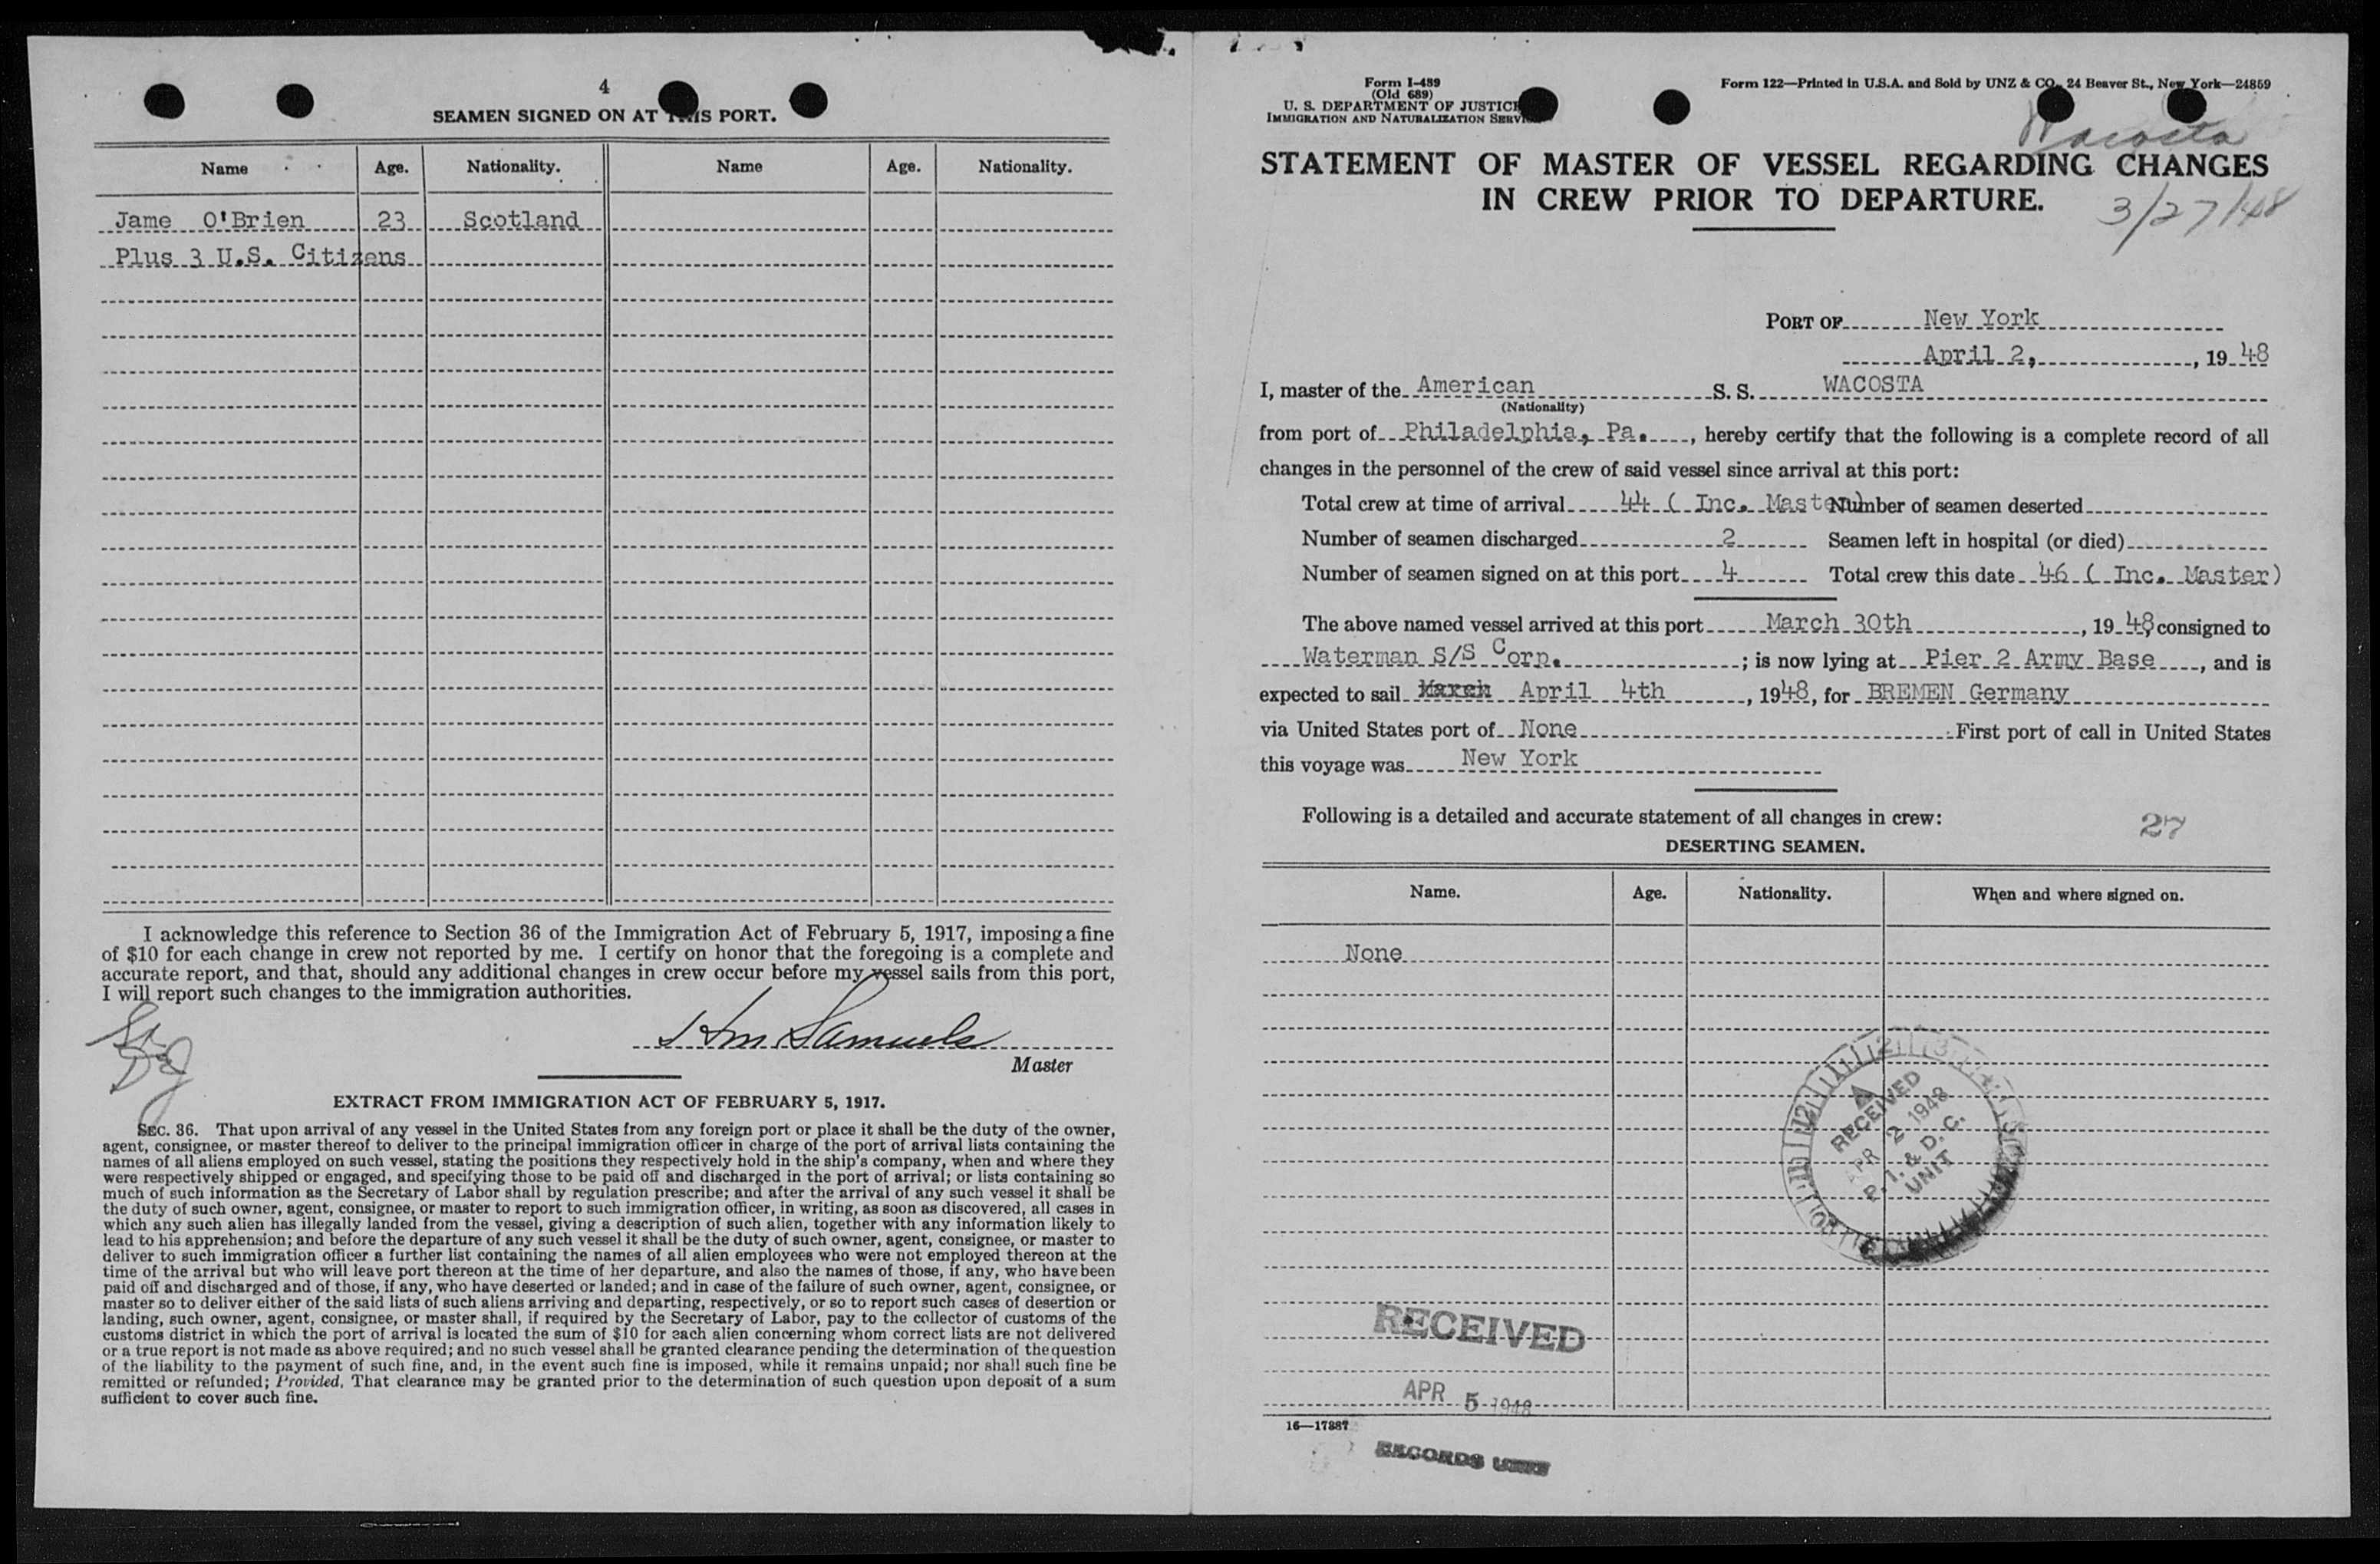 4
SEAMEN SIGNED ON AT THIS PORT.
Name Age. Nationality. Name Age. Nationality.
Jame O'Brien 23 Scotland
Plus 3 U.S. Citizens
I acknowledge this reference to Section 36 of the Immigration Act of February 5, 1917, imposing a fine
of $10 for each change in crew not reported by me. I certify on honor that the foregoing is a complete and
accurate report, and that, should any additional changes in crew occur before my vessel sails from this port,
I will report such changes to the immigration authorities.
Samuels
Master
EXTRACT FROM IMMIGRATION ACT OF FEBRUARY 5, 1917.
SEC. 36. That upon arrival of any vessel in the United States from any foreign port or place it shall be the duty of the owner,
agent, consignee, or master thereof to deliver to the principal immigration officer in charge of the port of arrival lists containing the
names of all aliens employed on such vessel, stating the positions they respectively hold in the ship's company, when and where they
were respectively shipped or engaged, and specifying those to be paid off and discharged in the port of arrival; or lists containing so
much of such information as the Secretary of Labor shall by regulation prescribe; and after the arrival of any such vessel it shall be
the duty of such owner, agent, consignee, or master to report to such immigration officer, in writing, as soon as discovered, all cases in
which any such alien has illegally landed from the vessel, giving a description of such alien, together with any information likely to
lead to his apprehension; and before the departure of any such vessel it shall be the duty of such owner, agent, consignee, or master to
deliver to such immigration officer a further list containing the names of all alien employees who were not employed thereon at the
time of the arrival but who will leave port thereon at the time of her departure, and also the names of those, if any, who have been
paid off and discharged and of those, if any, who have deserted or landed; and in case of the failure of such owner, agent, consignee, or
master so to deliver either of the said lists of such aliens arriving and departing, respectively, or so to report such cases of desertion or
landing, such owner, agent, consignee, or master shall, if required by the Secretary of Labor, pay to the collector of customs of the
customs district in which the port of arrival is located the sum of $10 for each alien concerning whom correct lists are not delivered
or a true report is not made as above required; and no such vessel shall be granted clearance pending the determination of the question
of the liability to the payment of such fine, and, in the event such fine is imposed, while it remains unpaid; nor shall such fine be
remitted or refunded; Provided, That clearance may be granted prior to the determination of such question upon deposit of a sum
sufficient to cover such fine.
Form I-489
(Old 689)
U. S. DEPARTMENT OF JUSTICE
IMMIGRATION AND NATURALIZATION SERVICE
Form 122—Printed in U.S.A. and Sold by UNZ & CO., 24 Beaver St., New York—24859
Wacosta
STATEMENT OF MASTER OF VESSEL REGARDING CHANGES
IN CREW PRIOR TO DEPARTURE.
3/27/48
PORT OF New York
April 2, , 19 48
I, master of the American S. S. WACOSTA
(Nationality)
from port of Philadelphia, Pa. , hereby certify that the following is a complete record of all
changes in the personnel of the crew of said vessel since arrival at this port:
Total crew at time of arrival 44 ( Inc. Master) Number of seamen deserted
Number of seamen discharged 2 Seamen left in hospital (or died)
Number of seamen signed on at this port 4 Total crew this date 46 ( Inc. Master)
The above named vessel arrived at this port March 30th , 19 48, consigned to
Waterman S/S Corp. ; is now lying at Pier 2 Army Base , and is
expected to sail March April 4th , 1948, for BREMEN Germany
via United States port of None . First port of call in United States
this voyage was New York
Following is a detailed and accurate statement of all changes in crew:
27
DESERTING SEAMEN.
Name. Age. Nationality. When and where signed on.
None
RECEIVED
APR 2 1948
P. I. & D. C.
UNIT
RECEIVED
APR 5 1948
16—17887
RECORDS UNIT